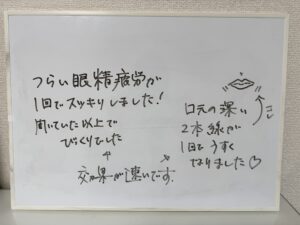 つらい眼精疲労が
1回でスッキリしました!
聞いていた以上で
びっくりでした
効果が速いです.
口元の深い
2本線が
1回でうすく
なりました♡